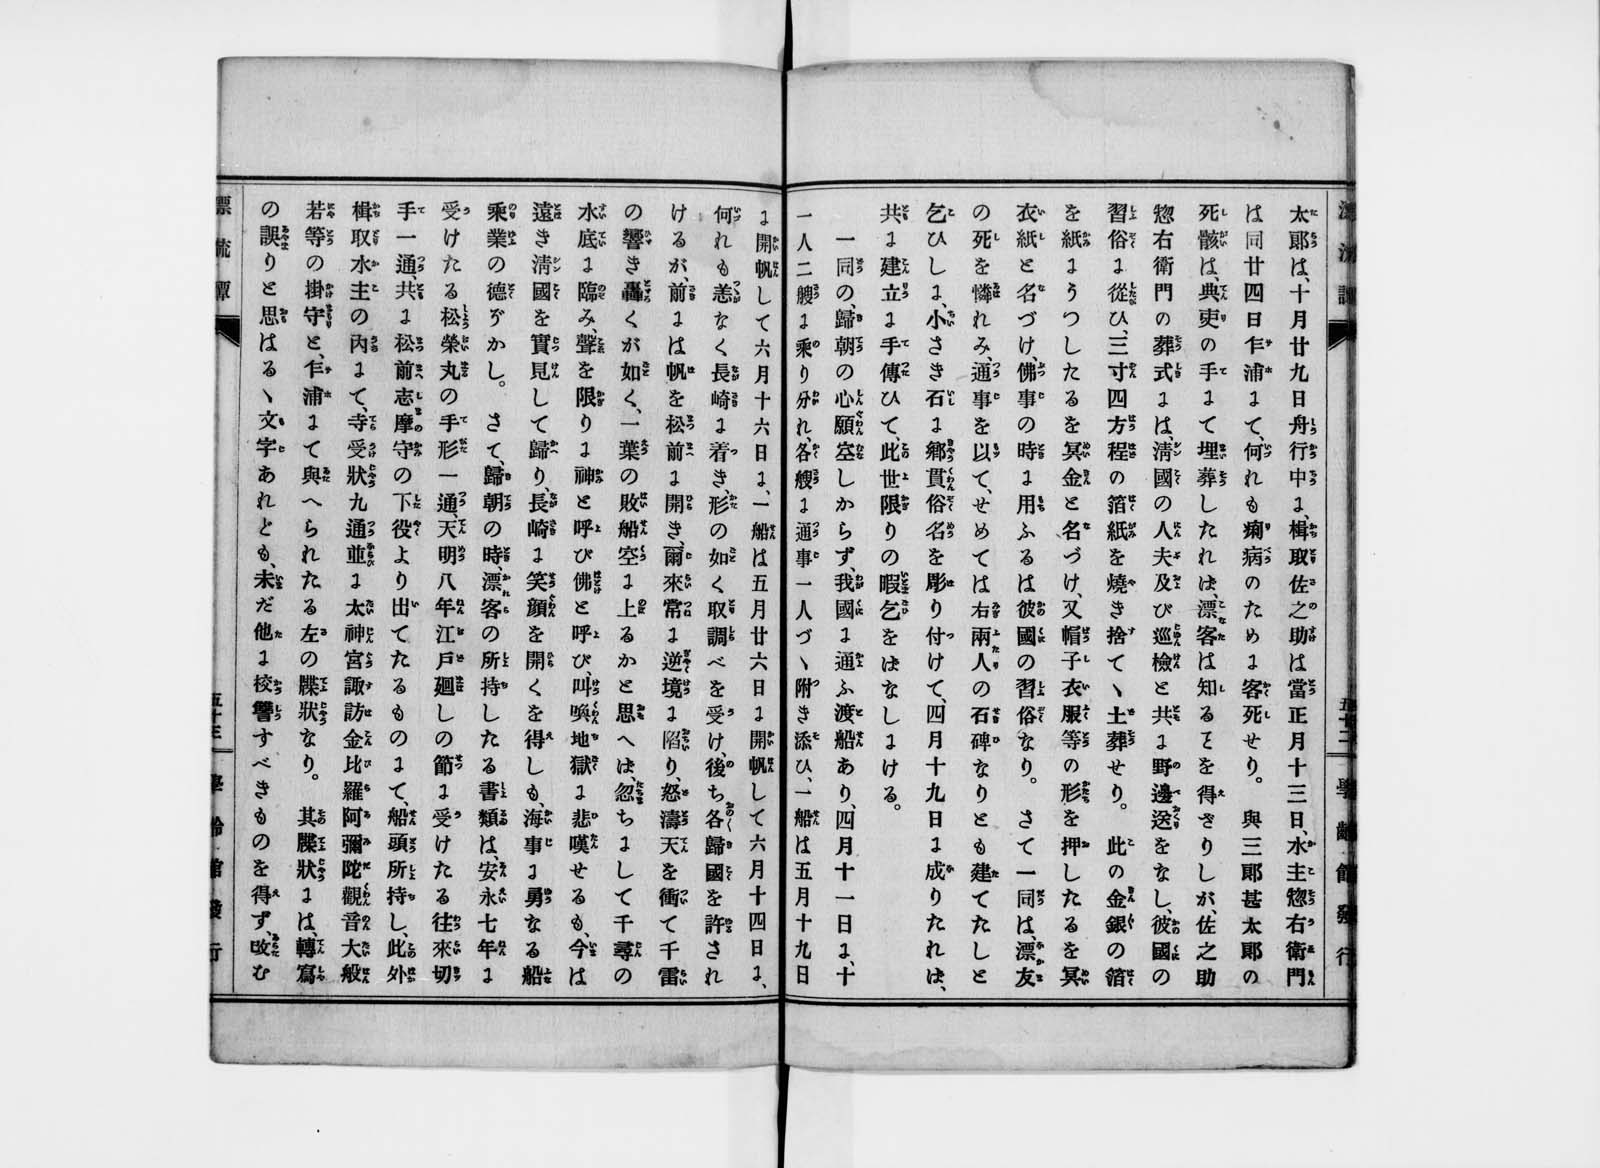 太郞は、十月廿九日舟行中に、楫取佐之助は當正月十三日、水主惣右衛門
は同廿四日乍浦にて、何れも痢病のために客死せり。　與三郞甚太郞の
死骸は、典吏の手にて埋葬したれは、漂客は知るヿを得ざりしが、佐之助
惣右衛門の葬式には、淸國の人夫及び巡檢と共に野邊送をなし、彼國の
習俗に從ひ、三寸四方程の箔紙を燒き捨てヽ土葬せり。　此の金銀の箔
を紙にうつしたるを冥金と名づけ、又帽子衣服等の形を押したるを冥
衣紙と名づけ、佛事の時に用ふるは彼國の習俗なり。　さて一同は、漂友
の死を憐れみ、通事を以て、せめては右兩人の石碑なりとも建てたしと
乞ひしに、小さき石に鄕貫俗名を彫り付けて、四月十九日に成りたれは、
共に建立に手傳ひて、此世限りの暇乞をはなしにける。
一同の、歸朝の心願空しからず、我國に通ふ渡船あり、四月十一日に、十
一人二艘に乘り分れ、各艘に通事一人づヽ附き添ひ、一船は五月十九日
に開帆して六月十六日に、一船は五月廿六日に開帆して六月十四日に、
何れも恙なく長崎に着き、形の如く取調べを受け、後ち各歸國を許され
けるが、前には帆を松前に開き、爾來常に逆境に陷り、怒濤天を衝て千雷
の響き轟くが如く、一葉の敗船空に上るかと思へは、忽ちにして千尋の
水底に臨み、聲を限りに神と呼び佛と呼び、叫喚地獄に悲嘆せるも、今は
遠き淸國を實見して歸り、長崎に笑顔を開くを得しも、海事に勇なる船
乘業の德ぞかし。　さて、歸朝の時、漂客の所持したる書類は、安永七年に
受けたる松榮丸の手形一通、天明八年江戸廻しの節に受けたる往來切
手一通、共に松前志摩守の下役より出てたるものにて、船頭所持し、此外
楫取水主の内にて、寺受狀九通並に太神宮諏訪金比羅阿彌陀觀音大般
若等の掛守と、乍浦にて與へられたる左の牒狀なり。　其牒狀には、轉寫
の誤りと思はるヽ文字あれとも、未だ他に校讐すべきものを得ず、改む
漂流譚
五十三
學齡館發行